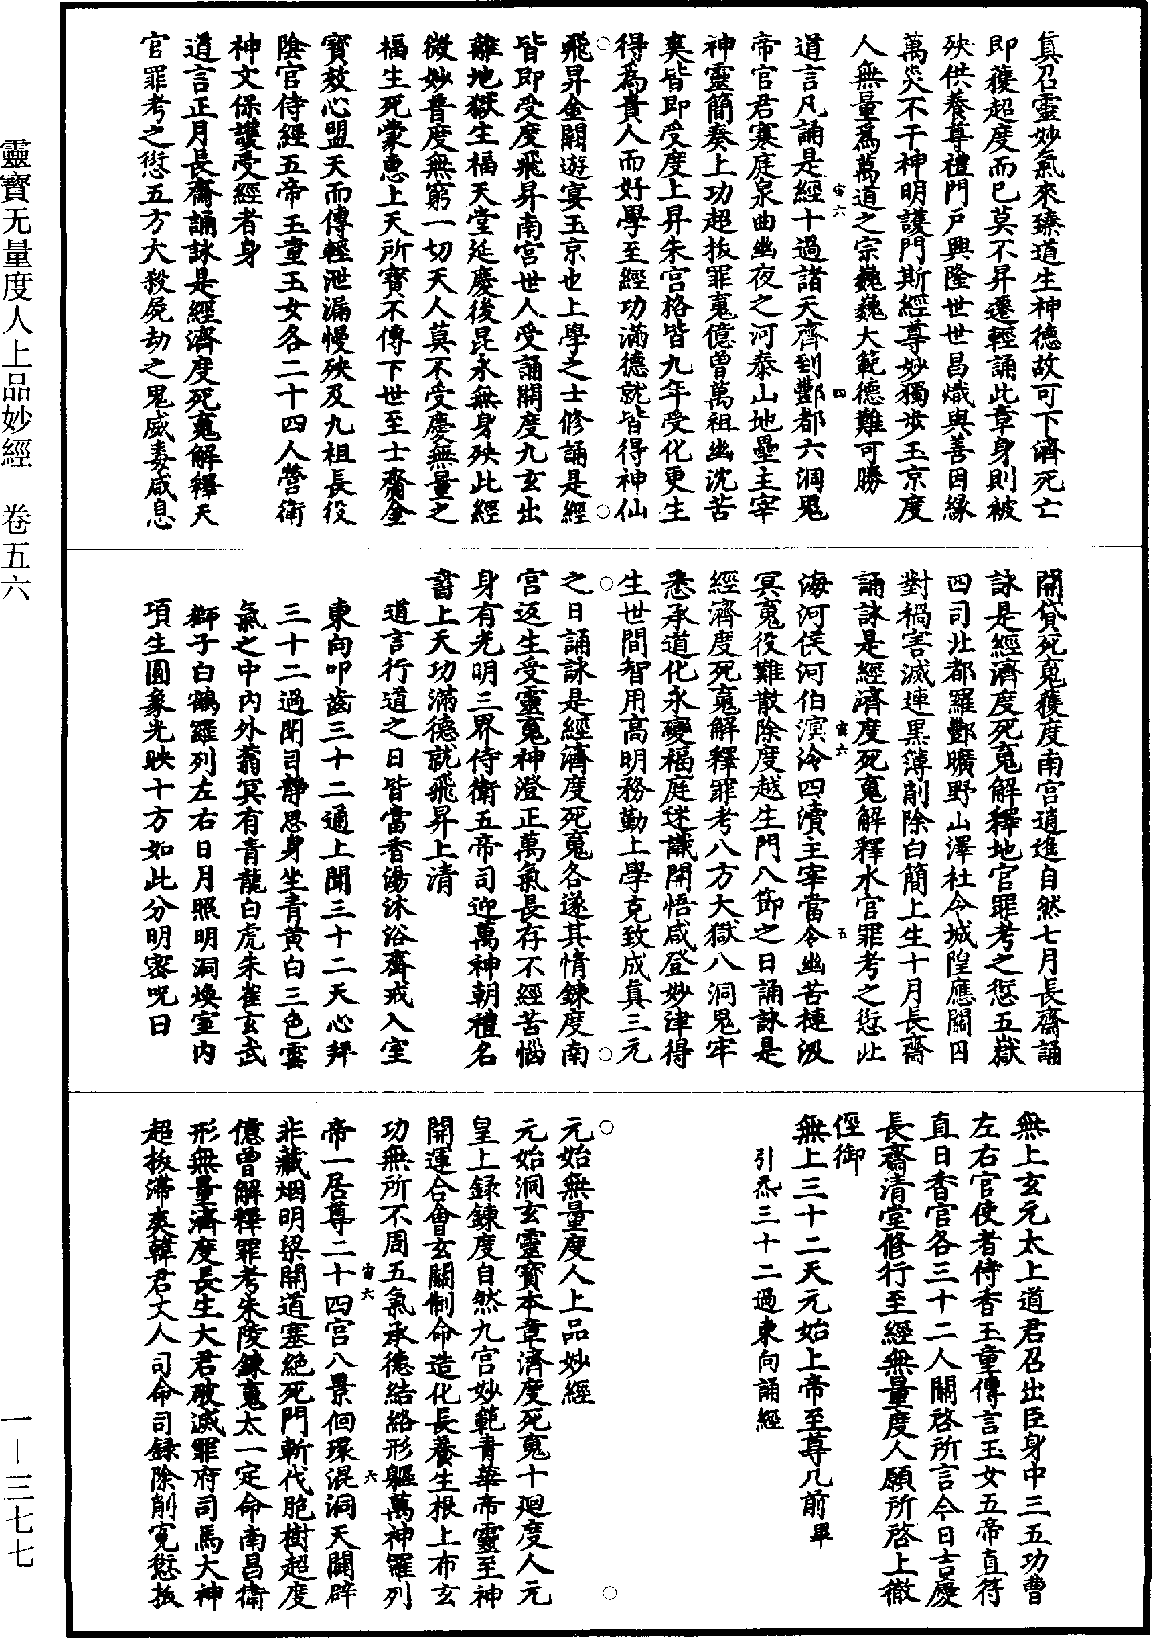 靈寳无量度人上品妙經　卷五六
真召靈妙氣來臻道生神德故可下濟死亡
即獲超度而已莫不昇遷輕誦此章身則被
殃供養尊禮門戶興隆世世昌熾與善因緣
萬災不干神明護門斯經尊妙獨步玉京度
人無量爲萬道之宗巍巍大範德難可勝
道言凡誦是經十過諸天齊到酆都六洞鬼
宙六
四
帝官君寒庭泉曲幽夜之河泰山地壘主宰
神靈簡奏上功超拔罪䰟億曾萬祖幽沈苦
爽皆即受度上昇朱宮格皆九年受化更生
得為貴人而好學至經功滿德就皆得神仙
飛昇金闕遊宴玉京也上學之士修誦是經
皆即受度飛昇南宮世人受誦關度九玄出
離地獄生福天堂延慶後昆永無身殃此經
微妙普度無窮一切天人莫不受慶無量之
福生死蒙惠上天所寳不傳下世至士齎金
寳效心盟天而傳輕泄漏慢殃及九祖長役
陰官侍經五帝玉童玉女各二十四人營衛
神文保護受經者身
道言正月長齋誦詠是經濟度死䰟解釋天
官罪考之愆五方大殺屍劫之鬼威毒咸息
開貸死䰟獲度南宮逍進自然七月長齋誦
詠是經濟度死䰟解釋地官罪考之愆五嶽
四司北都羅酆曠野山澤社令城隍應關因
對禍害滅連黑薄削除白簡上生十月長齋
誦詠是經濟度死䰟解釋水官罪考之愆此
海河侯河伯溟泠四瀆主宰當令幽苦槤汲
宙六
五
冥䰟役難散除度越生門八節之日誦詠是
經濟度死䰟解釋罪考八方大獄八洞鬼牢
悉承道化永變福庭迷識開悟咸登妙津得
生世間智用高明務勤上學克致成真三元
之日誦詠是經濟度死䰟各遂其情鍊度南
宮返生受靈䰟神澄正萬氣長存不經苦惱
身有光明三界侍衛五帝司迎萬神朝禮名
書上天功滿德就飛昇上清
道言行道之日皆當香湯沐浴齋戒入室
東向叩齒三十二通上聞三十二天心拜
三十二過閉目靜思身坐青黃白三色雲
氣之中內外蓊冥有青龍白虎朱雀玄武
獅子白鶴羅列左右日月照明洞煥室內
項生圓象光映十方如此分明密呪曰
無上玄元太上道君召出臣身中三五功曹
左右官使者侍香玉童傳言玉女五帝直符
直日香官各三十二人關啓所言今日吉慶
長齋清堂修行至經無量度人願所啓上徹
徑御
無上三十二天元始上帝至尊几前畢
引炁三十二過東向誦經
元始無量度人上品妙經
元始洞玄靈寳本章濟度死䰟十廻度人元
皇上錄鍊度自然九宮妙範青華帝靈至神
開運合會玄關制命造化長養生根上布玄
功無所不周五氣承德結絡形軀萬神羅列
宙六
六
帝一居尊二十四宮八景佪環混洞天關辟
非藏烟明梁開道塞絕死門斬代胞樹超度
億曾解釋罪考朱陵鍊䰟太一定命南昌衛
形無量濟度長生大君破滅罪府司馬大神
超拔滯爽韓君丈人司命司錄除削寃愆拔
一—三七七